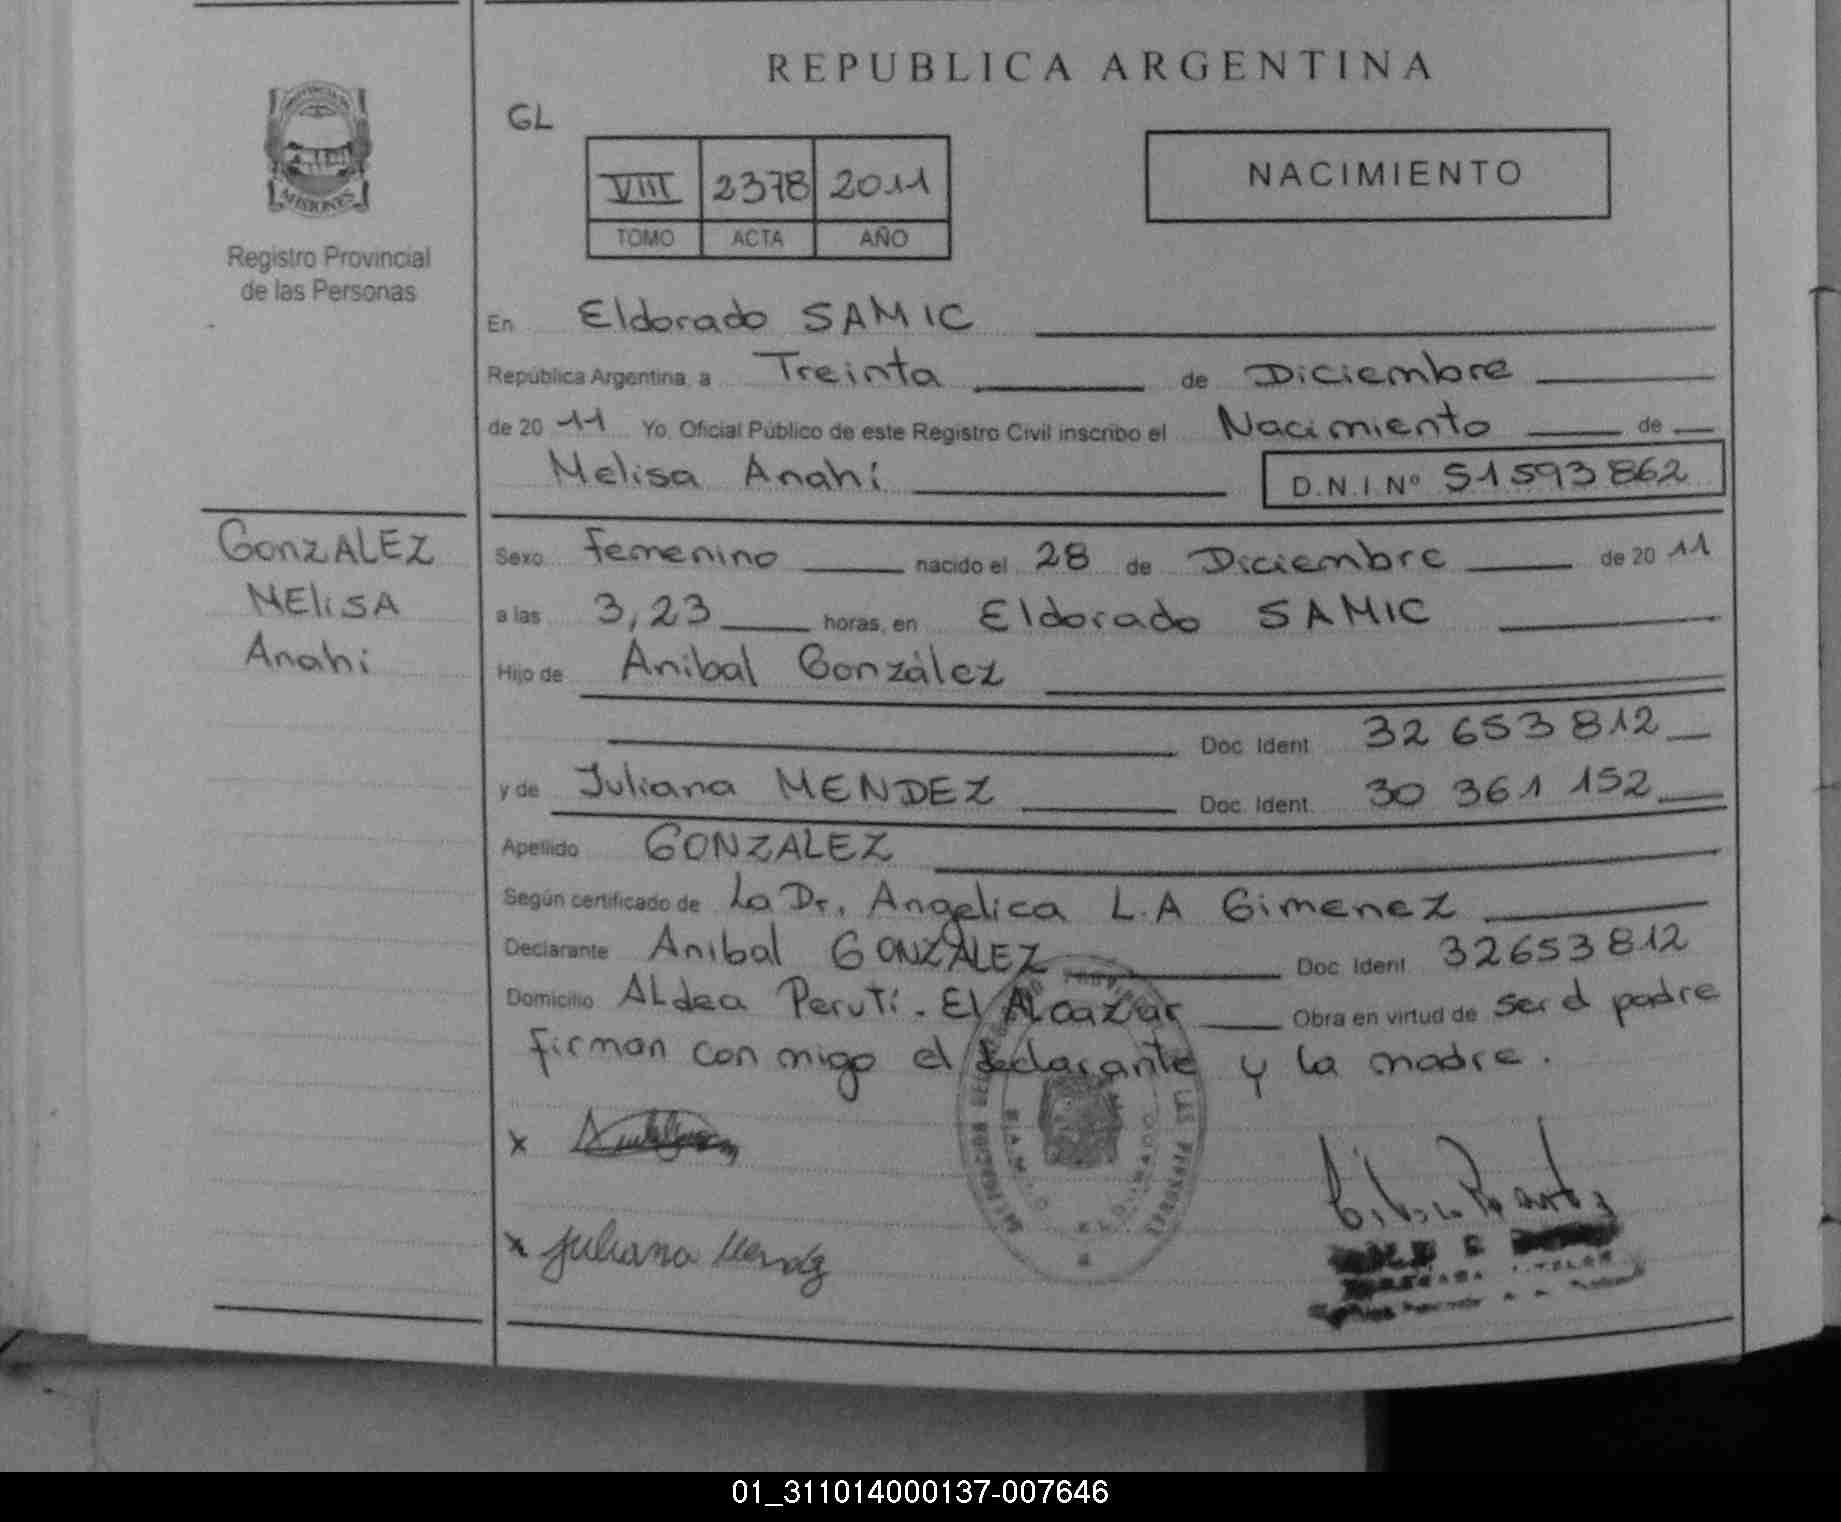 REPUBLICA ARGENTINA
GL
VIII 2378 2011
TOMO ACTA AÑO
NACIMIENTO
PROVINCIA DE
MISIONES
Registro Provincial
de las Personas
En Eldorado SAMIC
República Argentina, a Treinta de Diciembre
de 2011 Yo, Oficial Público de este Registro Civil inscribo el Nacimiento de
Melisa Anahí D.N.I Nº 51593862
GonzALEZ
MElisA
Anahi
Sexo Femenino nacido el 28 de Diciembre de 2011
a las 3,23 horas, en Eldorado SAMIC
Hijo de Anibal González
Doc. Ident. 32 653 812
y de Juliana MENDEZ Doc. Ident. 30 361 152
Apellido GONZALEZ
Según certificado de La Dr. Angelica L.A Gimenez
Declarante Anibal GONZALEZ Doc. Ident. 32653812
Domicilio ALdea Perutí. El Alcazar Obra en virtud de ser el padre
firman con migo el declarante y la madre.
x
x Juliana Mendez
01_311014000137-007646